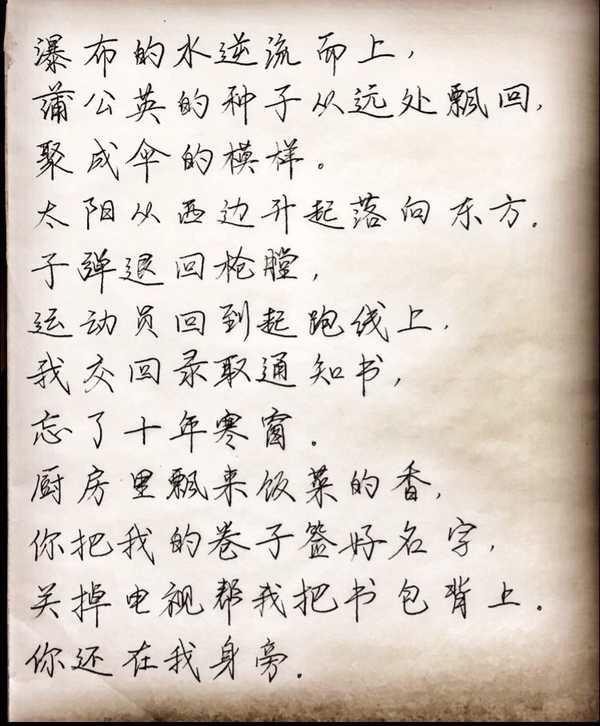 瀑布的水逆流而上,
蒲公英的种子从远处飘回,
聚成伞的模样。
太阳从西边升起落向东方。
子弹退回枪膛,
运动员回到起跑线上,
我交回录取通知书,
忘了十年寒窗。
厨房里飘来饭菜的香,
你把我的卷子签好名字,
关掉电视帮我把书包背上。
你还在我身旁。